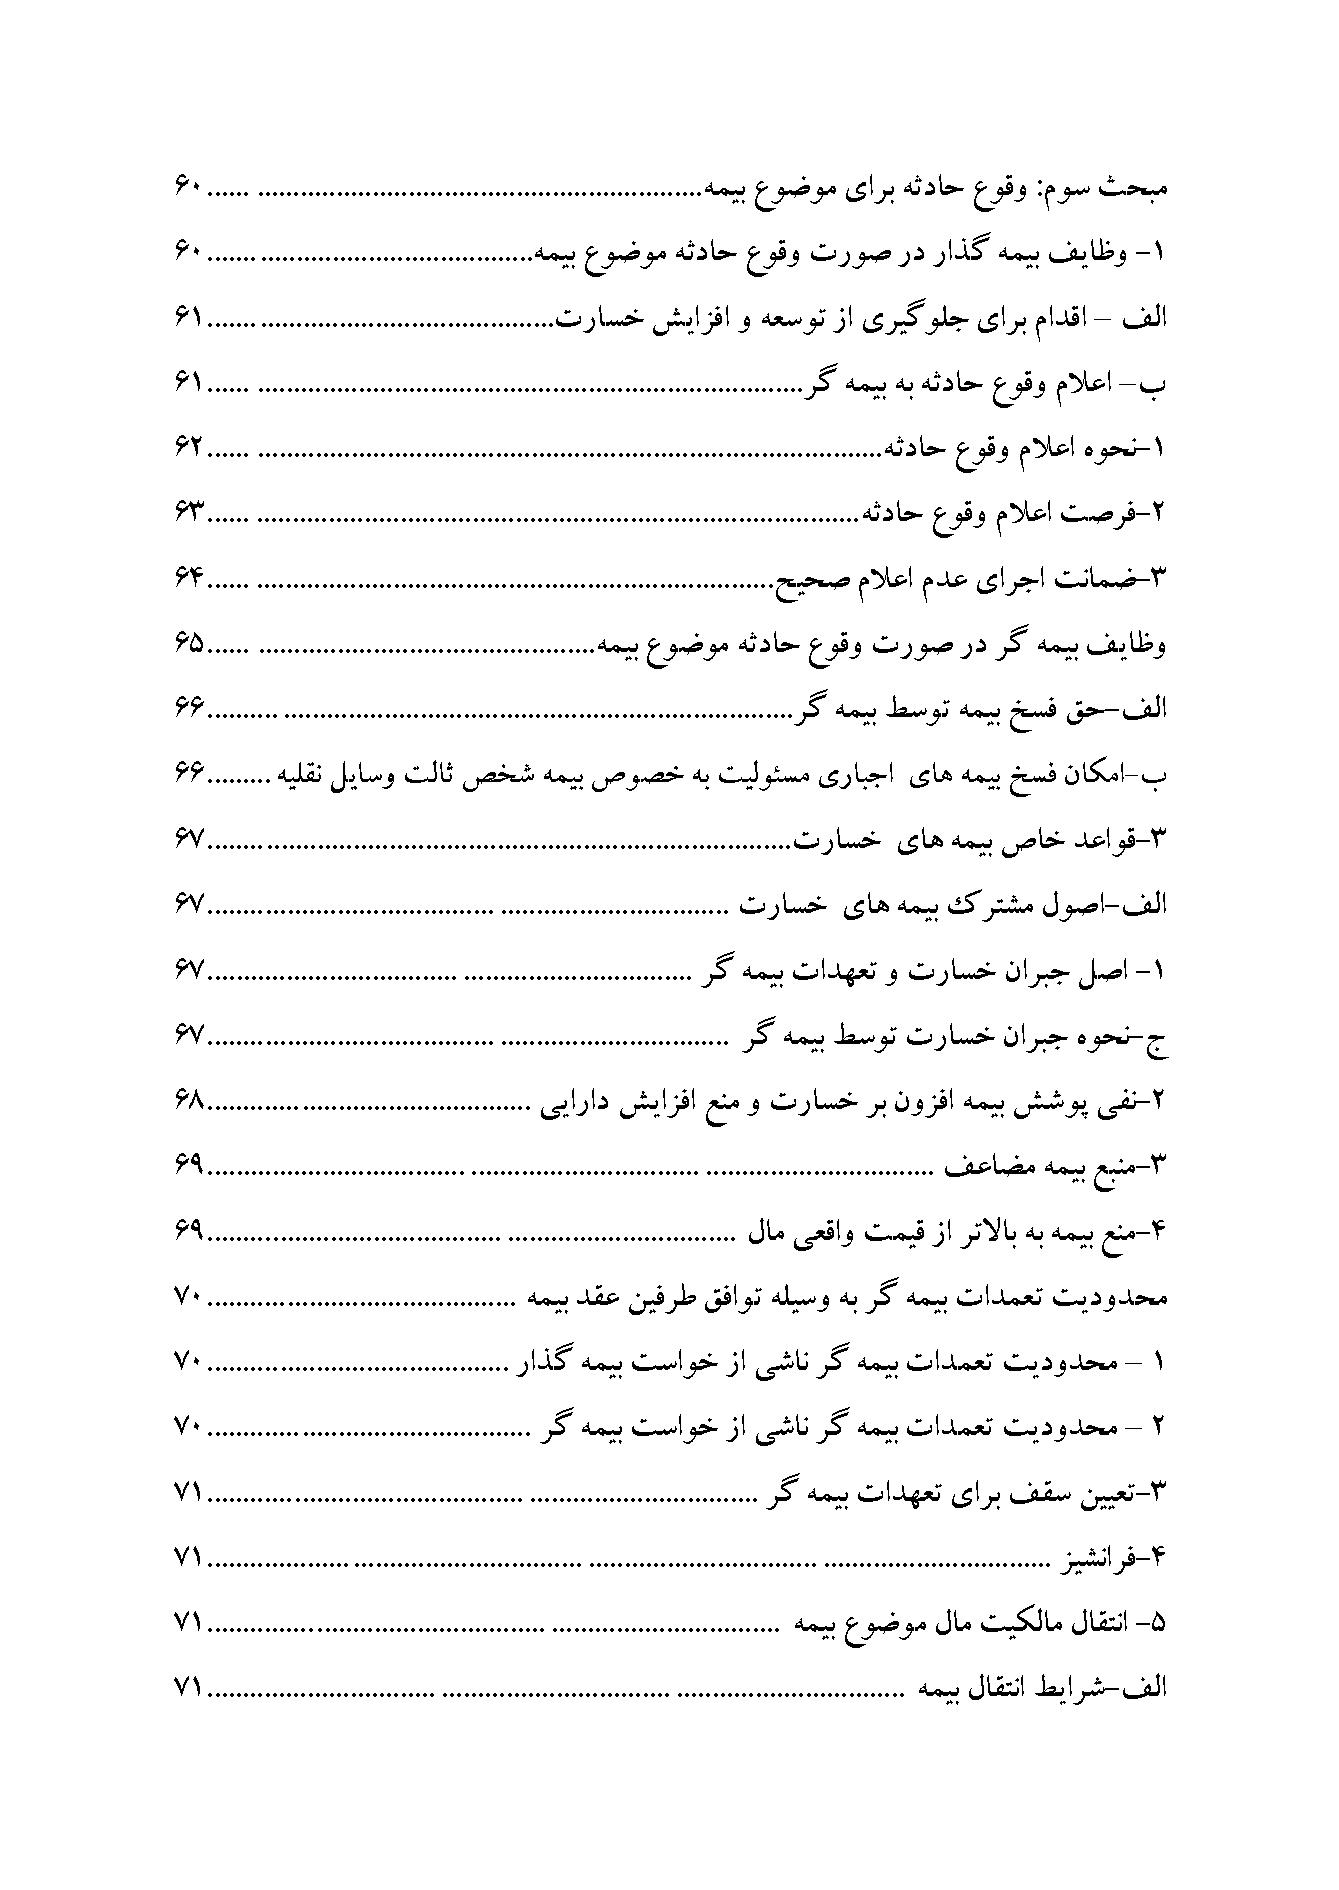 مبحث سوم: وقوع حادثه برای موضوع بیمه............................................................... ...... ۶۰
۱- وظایف بیمه گذار در صورت وقوع حادثه موضوع بیمه....................................... ....... ۶۰
الف – اقدام برای جلوگیری از توسعه و افزایش خسارت......................................... ....... ۶۱
ب– اعلام وقوع حادثه به بیمه گر............................................................................. ...... ۶۱
۱-نحوه اعلام وقوع حادثه........................................................................................ ...... ۶۲
۲-فرصت اعلام وقوع حادثه..................................................................................... ...... ۶۳
۳-ضمانت اجرای عدم اعلام صحیح......................................................................... ...... ۶۴
وظایف بیمه گر در صورت وقوع حادثه موضوع بیمه............................................... ...... ۶۵
الف-حق فسخ بیمه توسط بیمه گر....................................................................... .......... ۶۶
ب-امکان فسخ بیمه های اجباری مسئولیت به خصوص بیمه شخص ثالث وسایل نقلیه ......... ۶۶
۳-قواعد خاص بیمه های خسارت.......................................................................... ........ ۶۷
الف-اصول مشترک بیمه های خسارت ................................ ........................................ ۶۷
۱- اصل جبران خسارت و تعهدات بیمه گر ................................ ................................... ۶۷
ج-نحوه جبران خسارت توسط بیمه گر ................................ ........................................ ۶۷
۲-نفی پوشش بیمه افزون بر خسارت و منع افزایش دارایی ................................ ............. ۶۸
۳-منبع بیمه مضاعف ................................ ................................ .................................... ۶۹
۴-منع بیمه به بالاتر از قیمت واقعی مال ................................ ......................................... ۶۹
محدودیت تعمدات بیمه گر به وسیله توافق طرفین عقد بیمه ................................ ........... ۷۰
۱ – محدودیت تعمدات بیمه گر ناشی از خواست بیمه گذار ................................ .......... ۷۰
۲ – محدودیت تعمدات بیمه گر ناشی از خواست بیمه گر ................................ ............. ۷۰
۳-تعیین سقف برای تعهدات بیمه گر ................................ ............................................ ۷۱
۴-فرانشیز ................................ ................................ ................................ .................... ۷۱
۵- انتقال مالکیت مال موضوع بیمه ................................ ............................................... ۷۱
الف-شرایط انتقال بیمه ................................ ................................ ................................ ۷۱